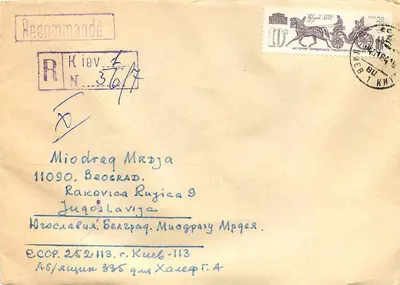 Recommandé
R Kiev 1
N 36/7
Miodrag Mrdja
11090. Beograd.
Rakovica Rujica 9
Jugoslavija
Югославия. Белград. Миодрагу Мрдея.
СССР. 252113. г. Киев-113
Аб/ящик 335 для Халеф Г. А